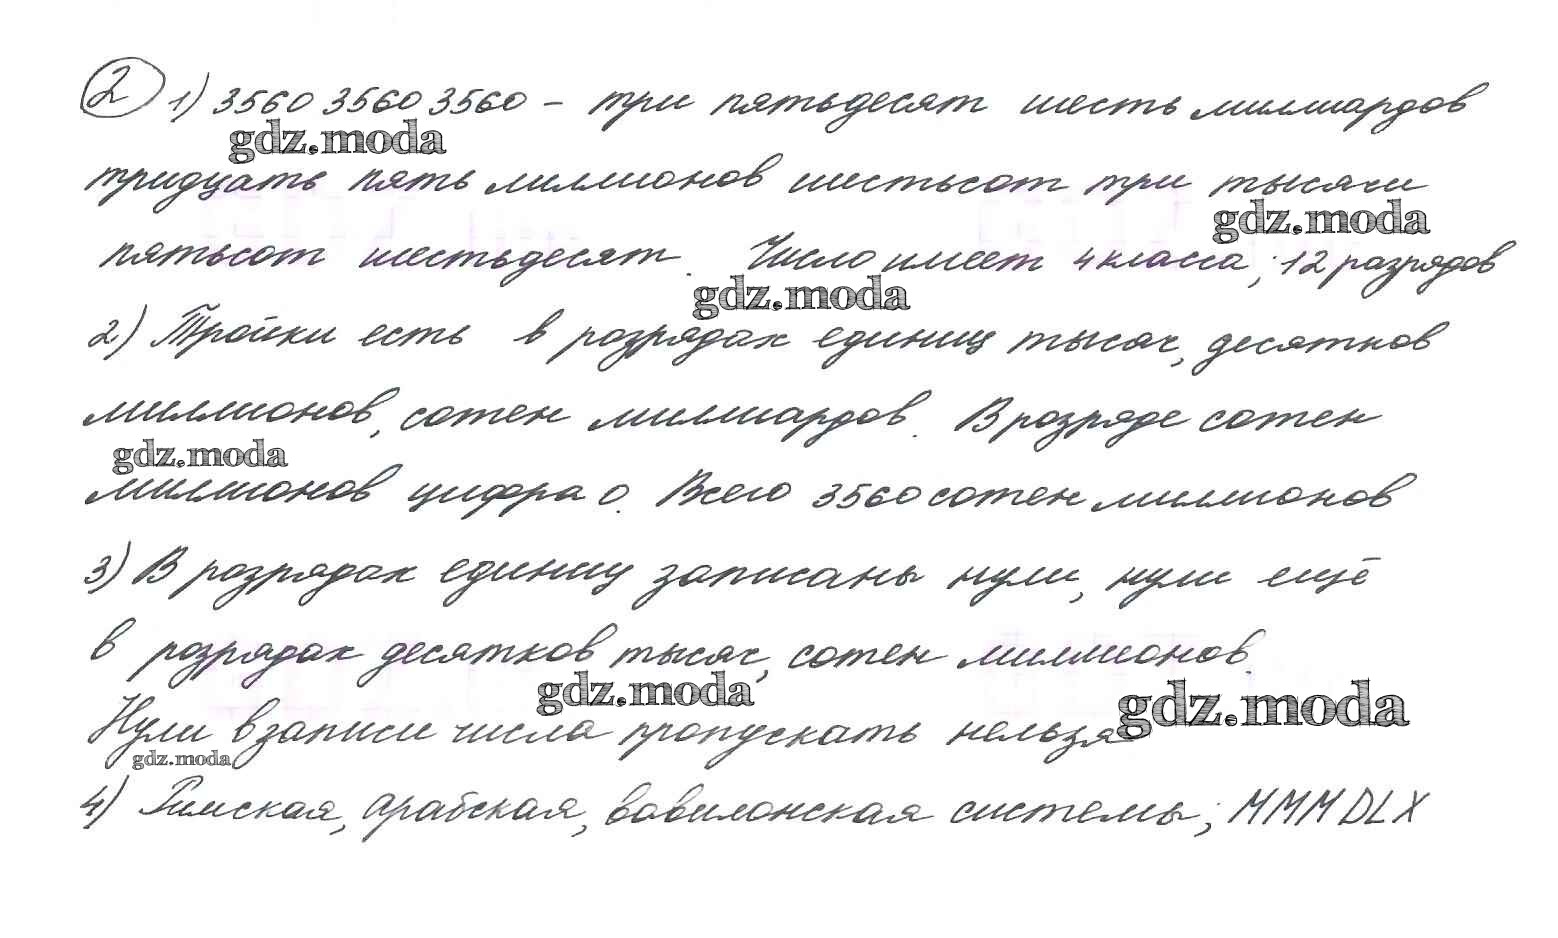 2 1) 3560 3560 3560 – три пятьдесят шесть миллиардов
gdz.moda
тридцать пять миллионов шестьсот три тысячи
gdz.moda
пятьсот шестьдесят. Число имеет 4 класса; 12 разрядов
gdz.moda
2) Тройки есть в разрядах единиц тысяч, десятков
миллионов, сотен миллиардов. В разряде сотен
gdz.moda
миллионов цифра 0. Всего 3560 сотен миллионов
3) В разрядах единиц записаны нули, нули ещё
в разрядах десятков тысяч, сотен миллионов.
gdz.moda
gdz.moda
Нули в записи числа пропускать нельзя
gdz.moda
4) Римская, арабская, вавилонская системы; MMMDLX